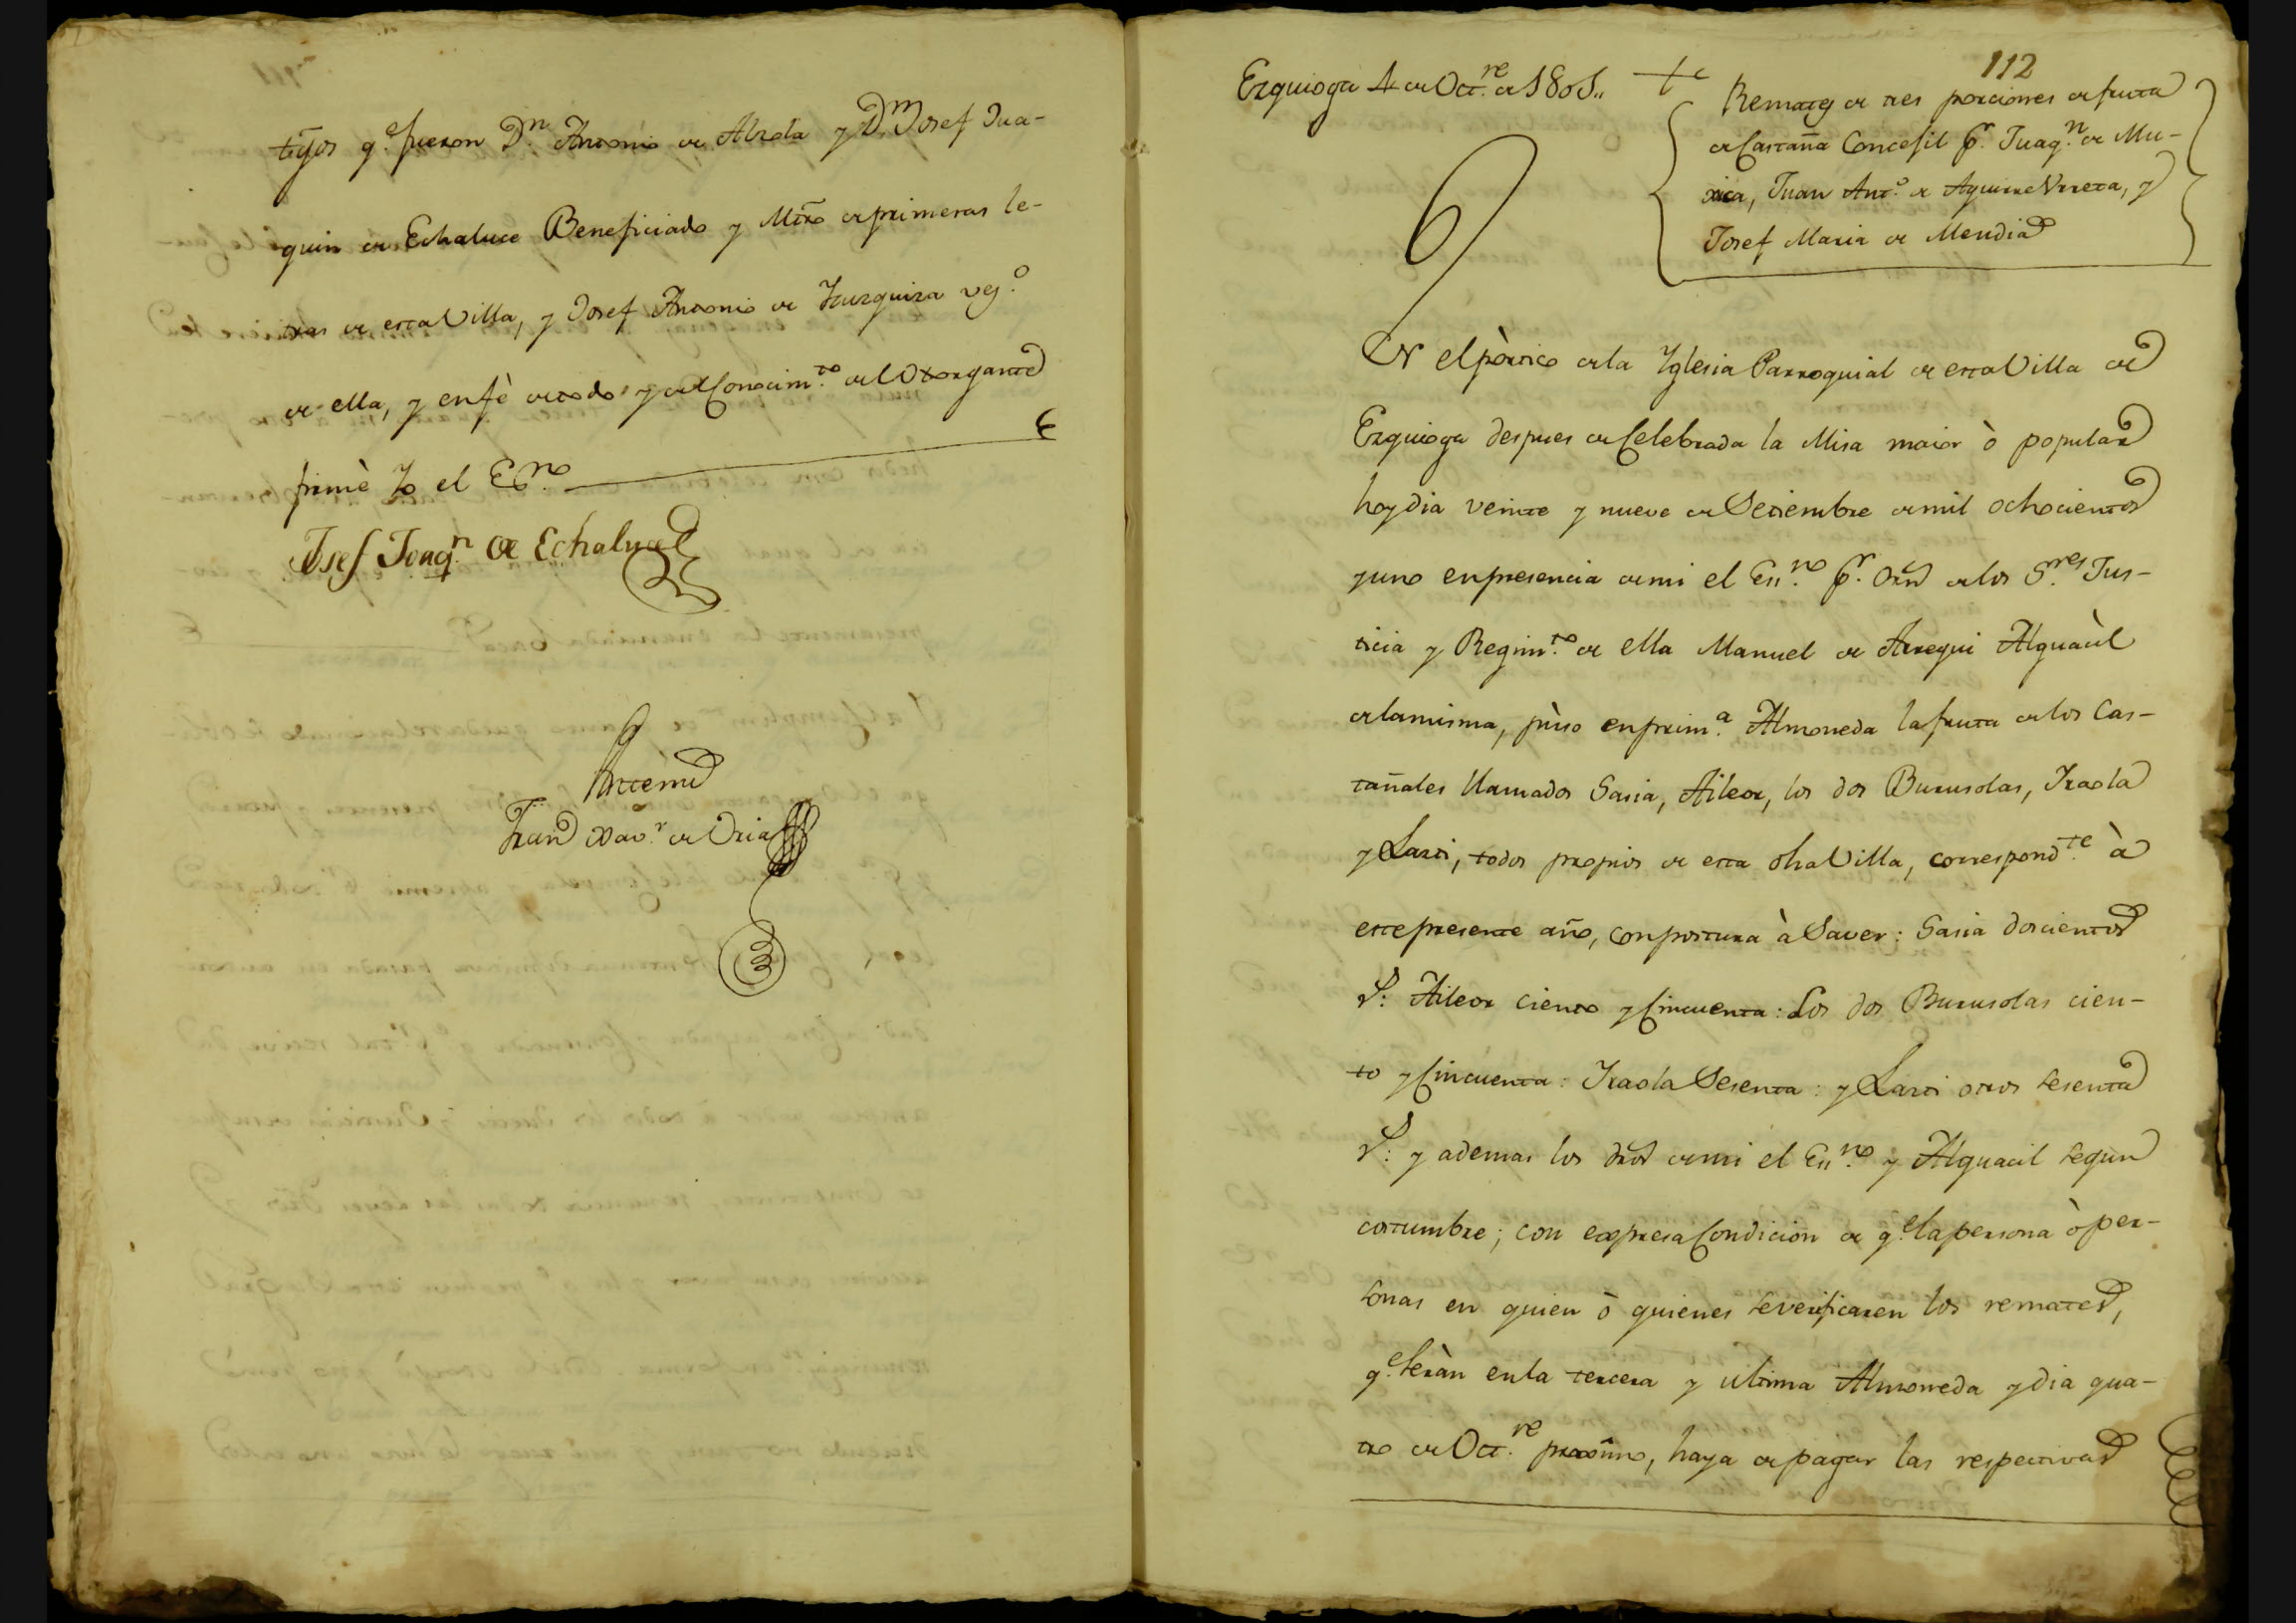 tigos q.e fueron D.n Antonio de Alzola y D.n Josef Jua-
quin de Echaluce Beneficiado y Mtro de primeras le-
tras de esta Villa, y Josef Antonio de Yzurquiza vez.o
de ella, y en fè de todo y del Conocim.to del Otorgante
firmè Yo el Es.no
Josef Joaq.n de Echaluce
Antemi
Fran Xav.r de Oria
112
Ezquioga 4 de Oct.re de 1801,,
Remates de tres porciones de fruta
de Castaña Concegil p.r Juaq.n de Mu-
xica, Juan Ant.o de Aguirre Urreta, y
Josef Maria de Mendia
En el pòrtico de la Yglesia Parroquial de esta Villa de
Ezquioga despues de Celebrada la Misa maior ò popular
hoy dia veinte y nueve de Setiembre de mil ochocientos
y uno en presencia de mi el Es.no p.r orn de los S.res Jus-
ticia y Regim.to de ella Manuel de Arregui Alguacil
de la misma, pùso en prim.a Almoneda la fruta de los Cas-
tañales llamados Sasia, Aileor, los dos Burusolas, Iraola
y Larzi, todos propios de esta dha Villa, correspond.te à
este presente año, con postura à Saver: Sasia doscientos
r.s: Aileor ciento y Cincuenta: Los dos Burusolas cien-
to y Cincuenta: Iraola Sesenta: y Larzi otros sesenta
r.s: y ademas los dros de mi el Es.no y Alguacil segun
costumbre; con expresa Condicion de q.e la persona ò per-
sonas en quien ò quienes se verificaren los remates,
q.e seràn en la tercera y ultima Almoneda y dia qua-
tro de Oct.re proximo, haya de pagar las respectivas